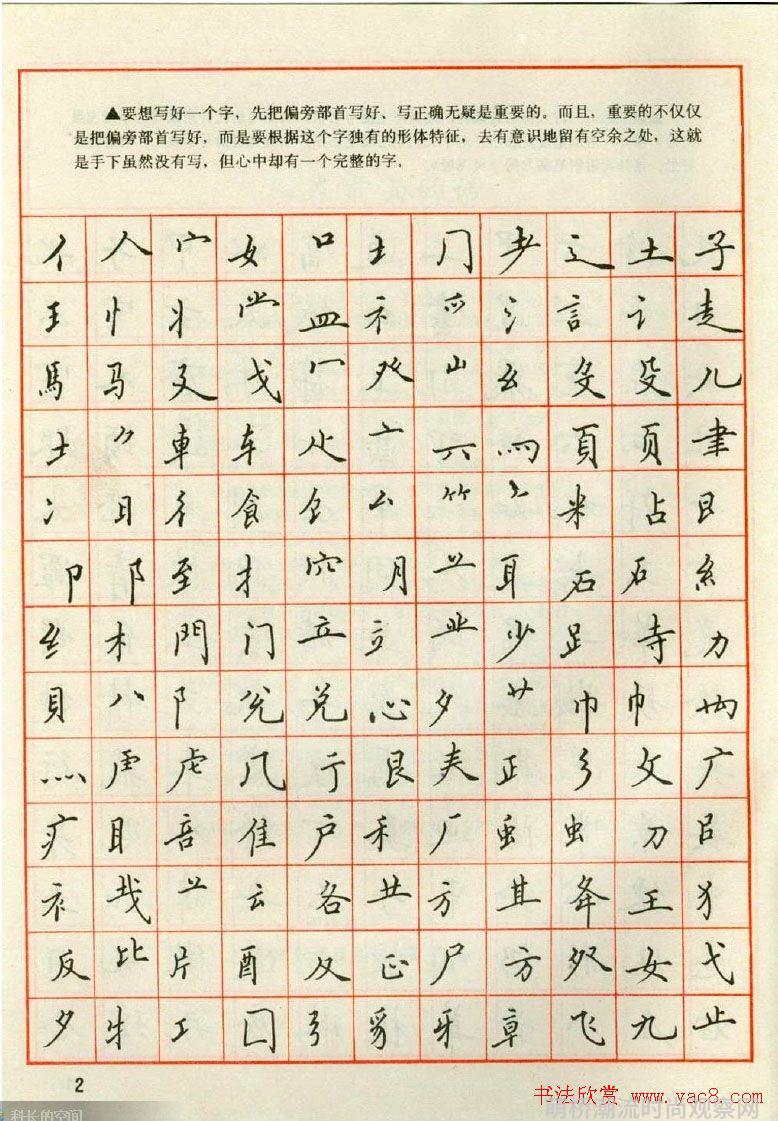 ▲要想写好一个字，先把偏旁部首写好、写正确无疑是重要的。而且，重要的不仅仅
是把偏旁部首写好，而是要根据这个字独有的形体特征，去有意识地留有空余之处，这就
是手下虽然没有写，但心中却有一个完整的字。
亻 人 宀 女 口 土 冂 耂 辶 土 子
王 忄 丬 龸 皿 礻 爫 氵 言 讠 走
馬 马 廴 戈 冖 癶 山 幺 殳 殳 儿
士 車 车 亠 六 罒 頁 页 聿
冫 日 彳 食 饣 厶 ⺮ 米 占 日
卩 阝 至 扌 穴 月 耳 石 石 糹
纟 木 門 门 立 立 业 少 足 寺 力
貝 八 阝 兑 兑 心 夕 艹 巾 巾
灬 虍 虍 几 亍 艮 正 彡 文 广
疒 目 音 隹 户 禾 厂 虫 虫 刀 吕
衤 云 各 方 其 夅 王 犭
反 比 片 酉 及 疋 尸 方 女 弋
夕 牜 工 囗 弓 豸 牙 章 飞 九 止
2
书法欣赏 www.yac8.com
萌桥潮流时尚观察网
科长的空间